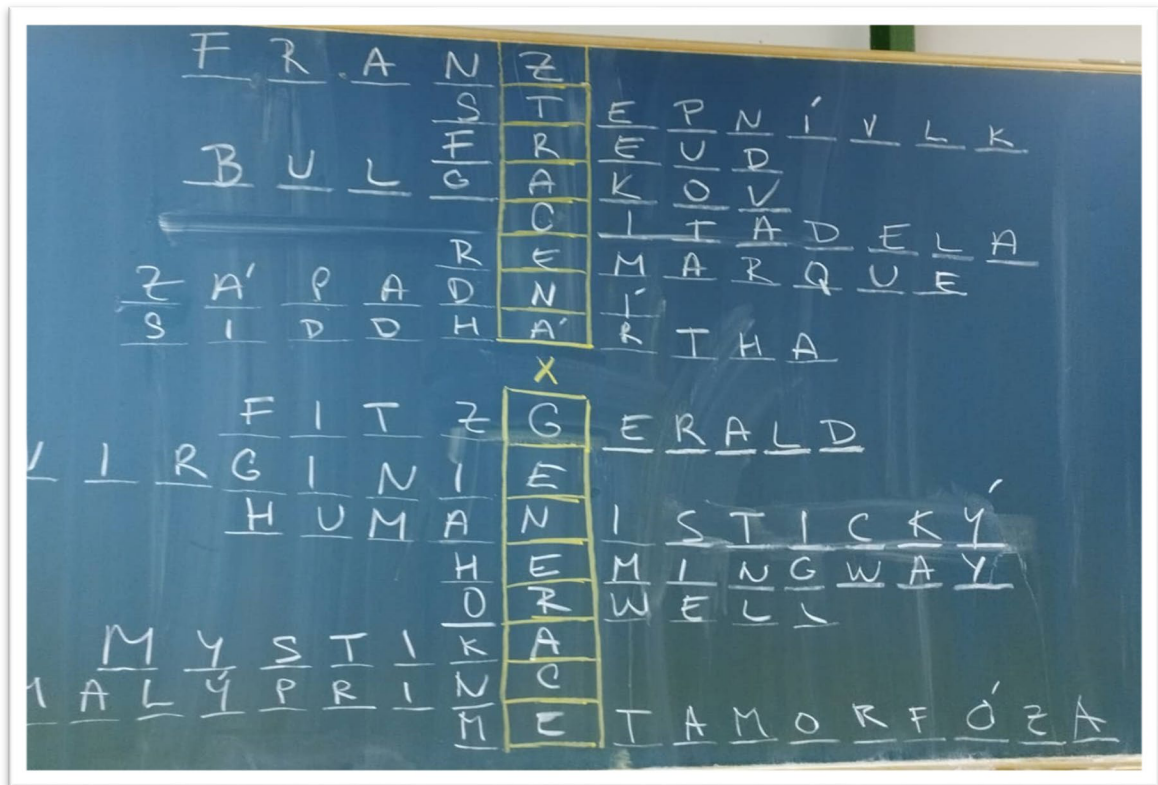 FRANZ
STEPNÍVLK
FREUD
BULGAKOV
CITADELA
REMARQUE
ZÁPADNÍ
SIDDHÁRTHA
X
FITZGERALD
VIRGINIE
HUMANISTICKÝ
HEMINGWAY
ORWELL
MYSTIKA
MALÝPRINC
METAMORFÓZA